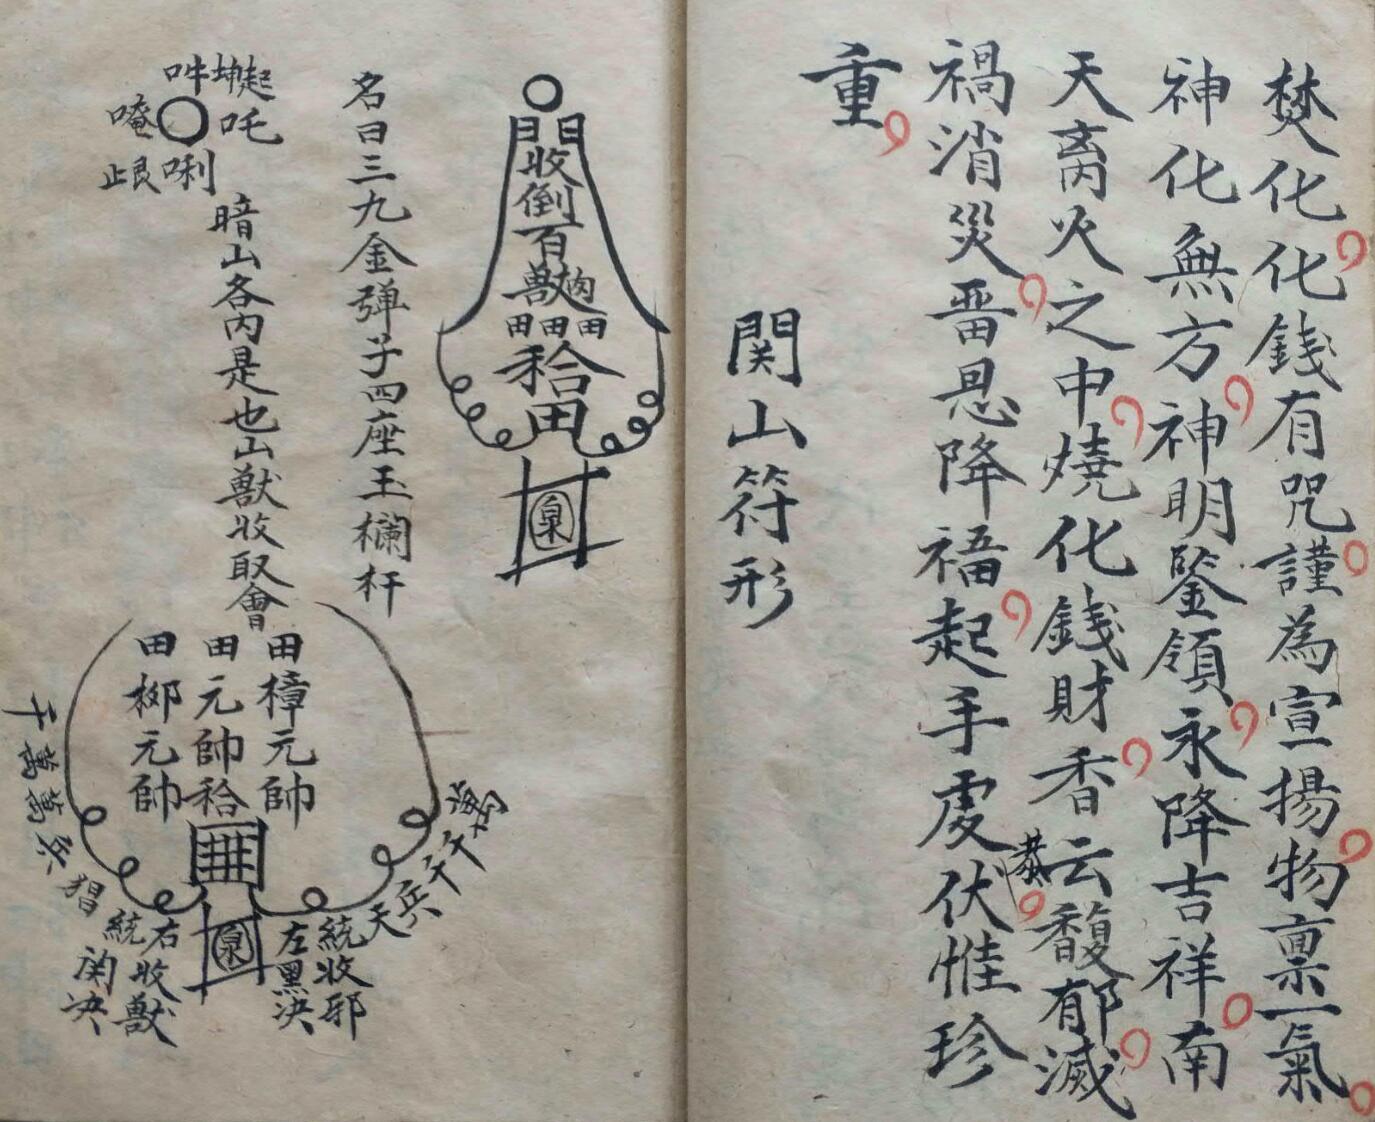 焚化化錢有咒謹為宣揚物禀一氣
神化無方神明鑒領永降吉祥南
天离火之中燒化錢財香云馥郁滅
禍消災畨恩降福起手處伏惟珍
重
関山符形
門收倒百獸
田田田
田
泉
名曰三九金弹子四座玉欄杆
吽
唵
吒
唎
暗山各内是也山獸收取會
田樟元帥
田元帥
田柳元帥
泉
萬千千兵天
統收邪
左黑决
右收獸
統関决
千萬萬兵猖